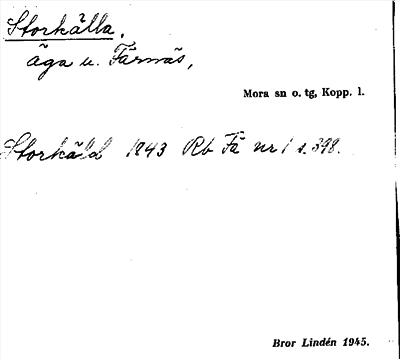 Storkälla,
äga u. Färnäs,
Mora sn o. tg, Kopp. l.
Storkäld 1843 Rb Fä nr 1 s. 398.
Bror Lindén 1945.